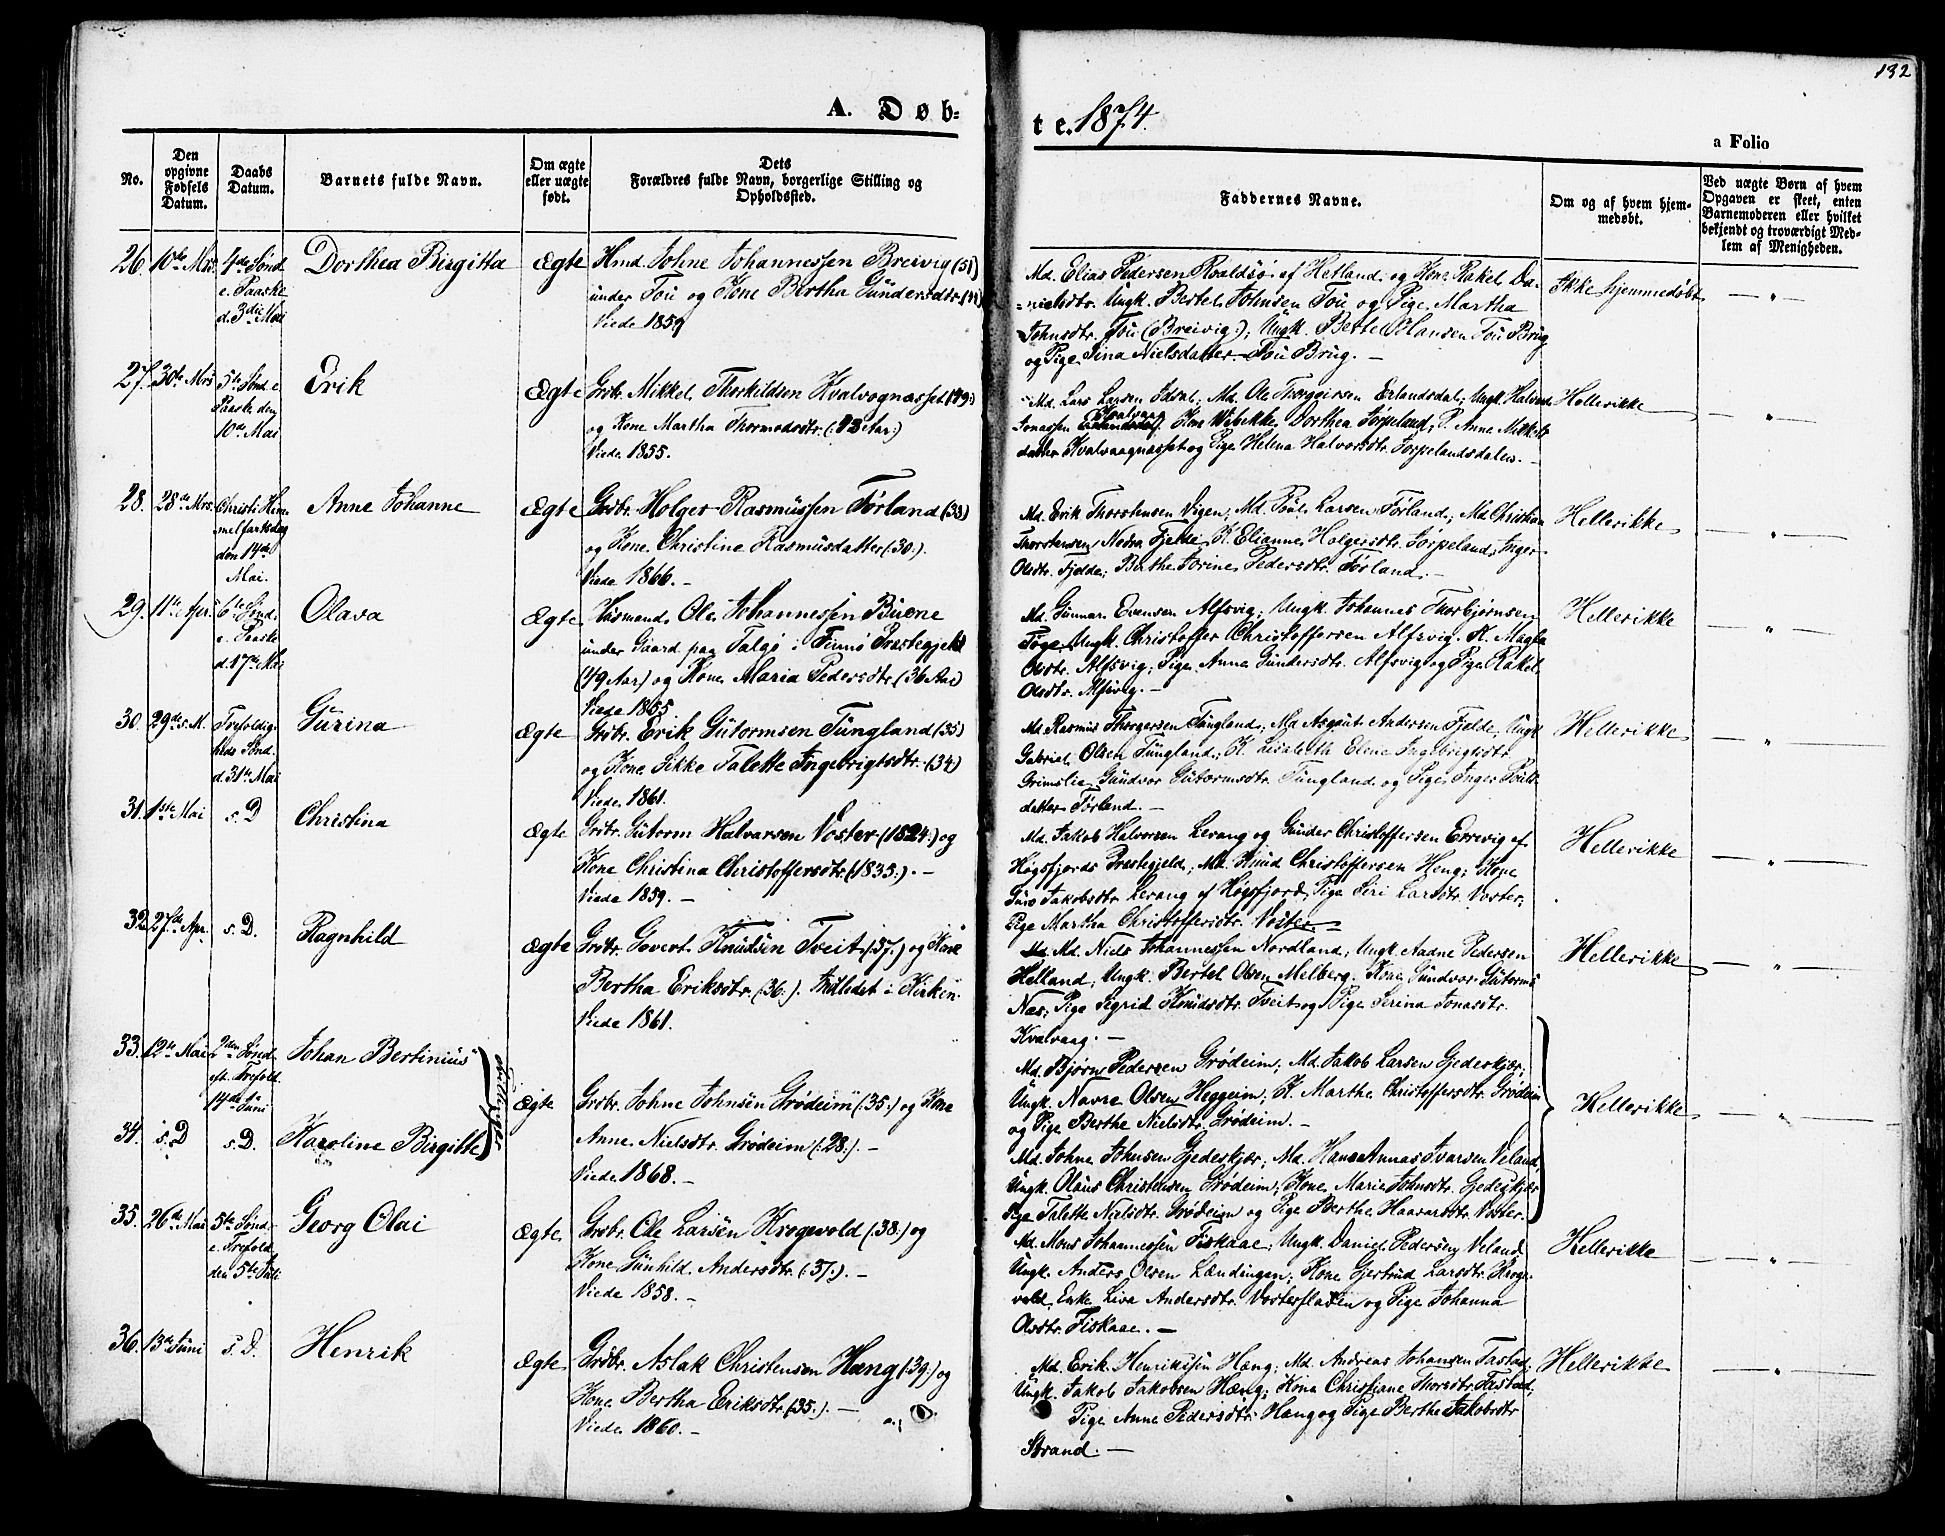 132
A. Døb-
te. 1874.
a Folio
No.
Den opgivne Fødsels Datum.
Daabs Datum.
Barnets fulde Navn.
Om ægte eller uægte født.
Dets Forældres fulde Navn, borgerlige Stilling og Opholdssted.
Faddernes Navne.
Om og af hvem hjemmedøbt.
Ved uægte Børn af hvem Opgaven er skeet, enten Barnemoderen eller hvilket bekjendt og troværdigt Medlem af Menigheden.
26. 10de Mrs. 4de Sønd. e. Paaske d. 3die Mai
Dorthea Birgitta
Ægte
Hmd. Johne Johannessen Breivig (51)
under Tou og Kone Bertha Gundersdtr.
Viede 1859
Md. Elias Pedersen Roaldsø af Hetland og Kone Rakel Da-
nielsdtr. Ungk. Bertel Johnsen Tou og Pige Martha
Johnsdtr. Tou (Breivig:), Ungk. Bertel Hansen Tou Brug
og Pige Sina Nielsdatter Tou Brug. —
Ikke hjemmedøbt
— " —
27. 30te Mrs 5te Sønd. e Paaske den 10de Mai
Erik
Ægte
Grbr. Mikkel Thorkildsen Kvalvognæsset (49:)
og Kone Martha Thormodsdtr. (:43 Aar:)
Viede 1855.
Md. Lars Larsen Idsal; Md. Ole Thorgersen Erlandsdal; Ungk. Halvor
Jonassen Kvalvaag. Kone Wibekke Dorthea Jørpeland; P. Anne Mikkels
datter Kvalvaagnæsset og Pige Helena Halvorsdtr. Jørpelandsdalen. —
Hellerikke
— " —
28. 28de Mrs. Christi Him-
melfartsdag
den 14de
Mai.
Anne Johanne
Ægte
Grbr. Holger Rasmussen Førland (33)
og Kone Christine Rasmusdatter (30:).
Viede 1866. —
Md. Erik Thorstensen Vigen; Md. Poul Larsen Førland; Md. Christian
Thorstensen Nedre Fjelde, K. Elianne Holgersdtr. Jørpeland; Inger
Olsdtr. Fjelde; Berthe Serine Pedersdtr. Førland. —
Hellerikke
— " —
29. 11te Apr. 6te Sønd. e. Paaske d. 17de Mai
Olava
Ægte
Husmand Ole Johannessen Buene
under Gaard paa Talgø i Finnø Præstegjeld
(49 Aar) og Kone Maria Pedersdtr. (36 Aar)
Viede 1855
Md. Gunnar Evensen Alfsvig; Ungk. Johannes Thorbjørnsen
Ungk. Christoffer Christoffersen Alfsvig. K. Magla
Olsdtr. Alfsvig; Pige Anna Gundersdtr. Alfsvig og Pige Rakel
Olsdtr. Alfsvig. —
Hellerikke
— " —
30. 29de s. M. Trefoldig-
heds Sønd.
d. 31te Mai
Gurina
Ægte
Grbr. Erik Gutormsen Tungland (35)
og Kone Sikke Talette Ingebrigtsdtr. (34)
Viede 1861.
Md. Rasmus Thorgersen Tungland; Md Asgaut Andersen Fjelde, Ungk
Gabriel Olsen Tungland, K. Lisabeth Elene Ingebrigtsdtr
Grimslie, Gundvor Gutormsdtr. Tungland og Pige Inger Pouls
datter Førland. —
Hellerikke
— " —
31. 1ste Mai s. D
Christina
Ægte
Grbr. Gutorm Halvorsen Voster (1824:) og
Kone Christina Christoffersdtr (1835:). —
Viede 1859. —
Md. Jakob Halvorsen Levang og Gunder Christoffersen Errevig af
Høgsfjords Præstegjeld; Md. Knud Christoffersen Heng; Kone
Jakobsdtr. Levang af Høgsfjord, Pige Siri Larsdtr. Voster;
Pige Martha Christoffersdtr. Voster. —
Hellerikke
— " —
32. 27de Apr. s. D.
Ragnhild
Ægte
Grbr. Govert Knudsen Tveit (37:) og Kone
Bertha Eriksdtr. (36:). Indledet i Kirken.
Viede 1861.
Md. Niels Johannessen Nordland; Ungk. Aadne Pedersen
Helland; Ungk. Bertel Olsen Melberg. Kone Gundvor Gutorms
Næs; Pige Sigrid Knudsdtr. Tveit og Pige Serina Jonasdtr.
Kvalvaag. —
Hellerikke
— " —
33. 12te Mai 2den Sønd. eft. Trefold. 14de Juni
Johan Bertinius
Tvillinger
Ægte
Grbr. Johne Johnsen Grødeim (:35:) og Kone
Anne Nielsdtr. Grødeim (:28:). —
Viede 1868. —
Md. Bjørn Pedersen Grødeim; Md. Jakob Larsen Gjedeskjær;
Ungk. Navre Olsen Heggeim; K. Marthe Christoffersdtr. Grødeim
og Pige Berthe Nielsdtr. Grødeim. —
Hellerikke
— " —
34. s. D s. D.
Karoline Birgitte
Md. Johne Johnsen Gjedeskjær; Md. Hans Annas Ivarsen Veland,
Ungk. Olaus Christensen Grødeim; Kone Marie Johnsdtr. Gjedeskjær
Pige Talette Nielsdtr. Grødeim og Pige Berthe Haavardsdtr. Voster.
35. 26te Mai 5te Sønd.
e. Trefold.
den 5te Juli
Georg Olai
Ægte.
Grbr. Ole Larsen Krogevold (38:) og
Kone Gunhild Andersdtr. (:37:). —
Viede 1858. —
Md. Mons Johannessen Fiskaae; Ungk. Daniel Pedersen Veland
Ungk. Anders Olsen Lændingen; Kone Gjertrud Larsdtr. Kroge-
vold, Enke Liva Andersdtr. Vosterfladen og Pige Johanna
Olsdtr. Fiskaae. —
Hellerikke
— " —
36. 13de Juni s. D.
Henrik
Ægte
Grbr. Aslak Christensen Hæng (39:) og
Kone Bertha Eriksdtr. (35:). —
Viede 1860. —
Md. Erik Henriksen Hæng; Md. Andreas Johansen Tastad;
Ungk. Jakob Jakobsen Hæng; Kone Christiane Thorsdtr. Tastad;
Pige Anne Pedersdtr. Hæng og Pige Berthe Jakobsdtr
Strand. —
Hellerikke
— " —